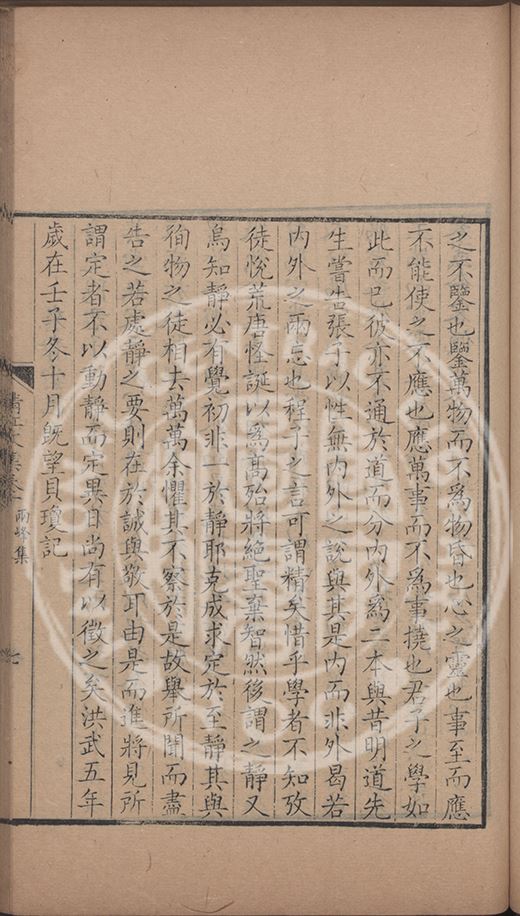 之不鑒也鑒萬物而不爲物昏也心之靈也事至而應
不能使之不應也應萬事而不爲事撓也君子之學如
此而已彼亦不通於道而分內外爲二本與昔明道先
生嘗告張子以性無內外之說與其是內而非外曷若
內外之兩忘也程子之言可謂精矣惜乎學者不知攷
徒悅荒唐怪誕以爲高殆將絕聖棄智然後謂之靜又
烏知靜必有覺初非一於靜耶克成求定於至靜其與
徇物之徒相去萬萬余懼其不察於是故舉所聞而盡
告之若處靜之要則在於誠與敬耳由是而進將見所
謂定者不以動靜而定異日尚有以徵之矣洪武五年
歲在壬子冬十月旣望貝瓊記
清江文集卷十 兩峰集
七